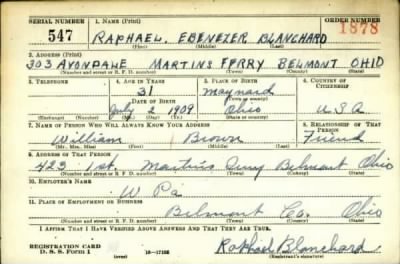 SERIAL NUMBER 1. NAME (Print) ORDER NUMBER
547 RAPHAEL. EBENEZER BLANCHARD 1878
(First) (Middle) (Last)
2. ADDRESS (Print)
303 AVONDALE MARTINS FERRY BELMONT OHIO
(Number and street or R. F. D. number) (Town) (County) (State)
3. TELEPHONE 4. AGE IN YEARS 5. PLACE OF BIRTH 6. COUNTRY OF CITIZENSHIP
31 Maynard
DATE OF BIRTH (Town or county)
July 2 1909 Ohio U.S.A
(Exchange) (No.) (Mo.) (Day) (Yr.) (State or country)
7. NAME OF PERSON WHO WILL ALWAYS KNOW YOUR ADDRESS 8. RELATIONSHIP OF THAT PERSON
William Brown Friend
(Mr., Mrs., Miss) (First) (Middle) (Last)
9. ADDRESS OF THAT PERSON
423 1st Martins Belmont Ohio
(Number and street or R. F. D. number) (Town) (County) (State)
10. EMPLOYER'S NAME
W Pa
11. PLACE OF EMPLOYMENT OR BUSINESS
Belmont Co. Ohio
(Number and street or R. F. D. number) (Town) (County) (State)
I AFFIRM THAT I HAVE VERIFIED ABOVE ANSWERS AND THAT THEY ARE TRUE.
REGISTRATION CARD
D. S. S. Form 1 (over) 16-17105 Raphael Blanchard
(Registrant's signature)